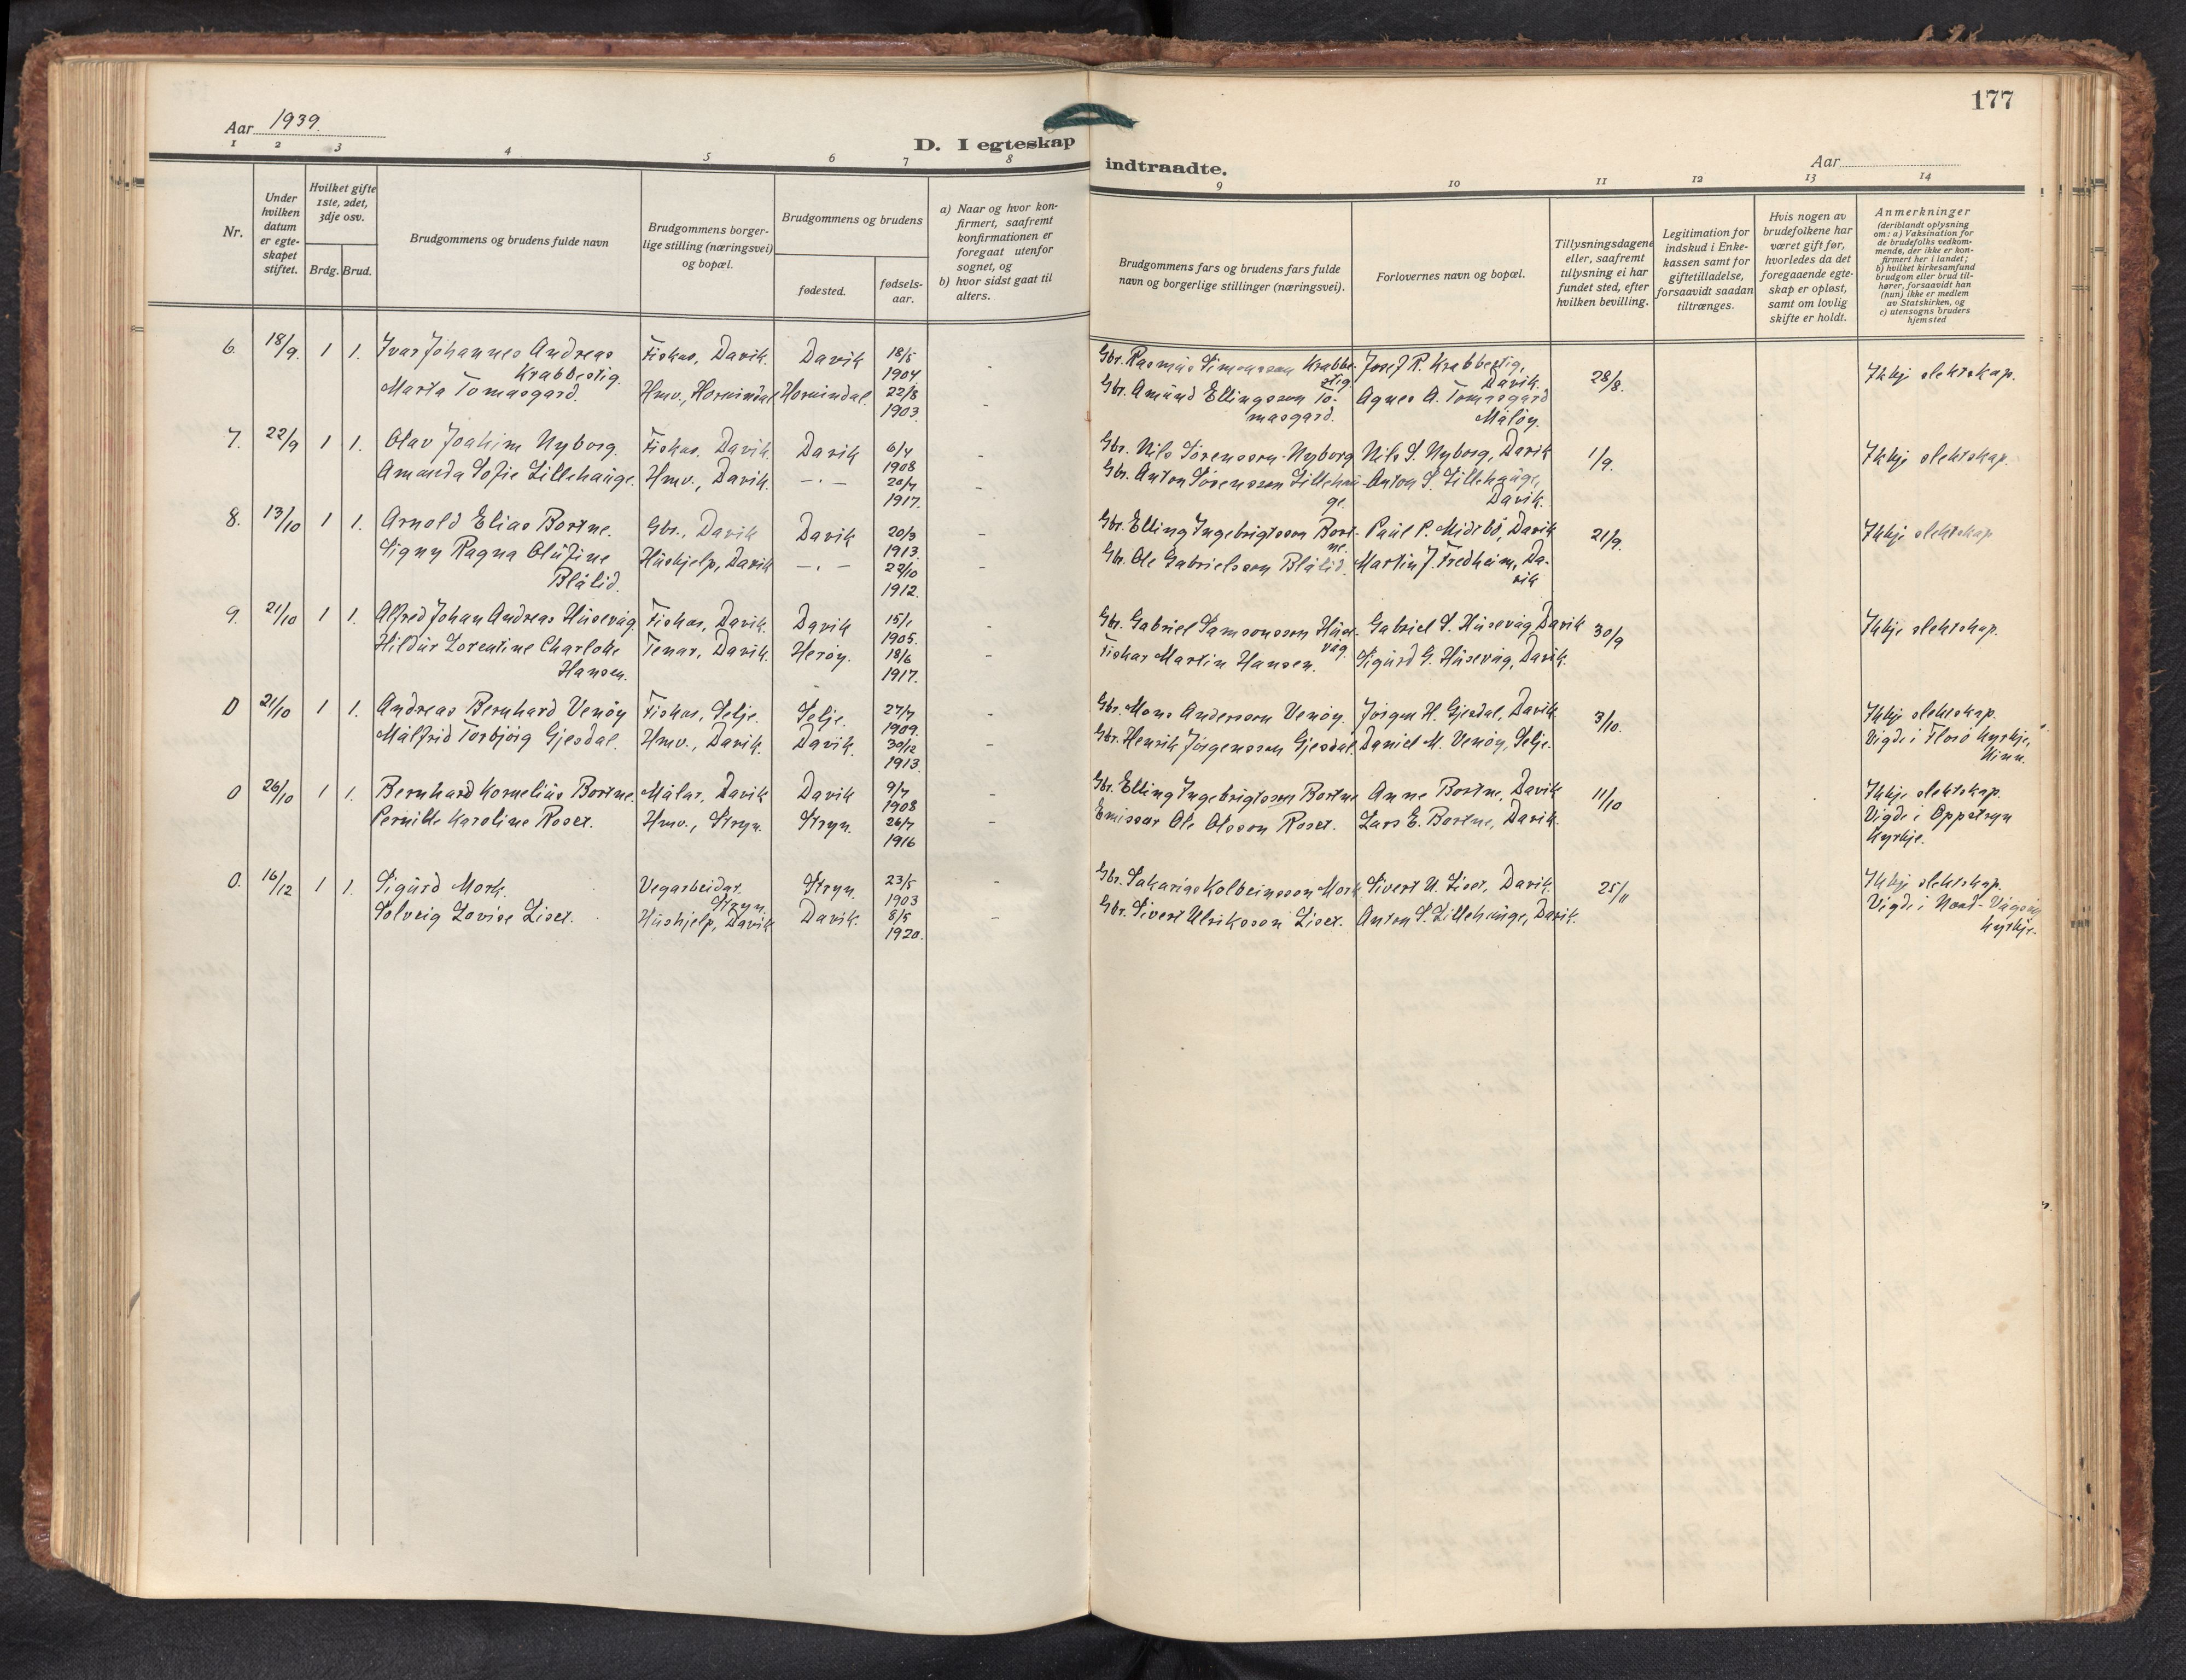 177
Aar 1939.
D. I egteskap
indtraadte.
Aar
1 2 3 4 5 6 7 8
9 10 11 12 13 14
Nr.
Under hvilken datum er egte-skapet stiftet.
Hvilket gifte 1ste, 2det, 3dje osv.
Brdg. Brud.
Brudgommens og brudens fulde navn
Brudgommens borger-lige stilling (næringsvei) og bopæl.
Brudgommens og brudens
fødested.
fødsels-aar.
a) Naar og hvor kon-firmert, saafremt konfirmationen er foregaat utenfor sognet, og
b) hvor sidst gaat til alters.
Brudgommens fars og brudens fars fulde navn og borgerlige stillinger (næringsvei).
Forlovernes navn og bopæl.
Tillysningsdagene eller, saafremt tillysning ei har fundet sted, efter hvilken bevilling.
Legitimation for indskud i Enke-kassen samt for giftetilladelse, forsaavidt saadan tiltrænges.
Hvis nogen av brudefolkene har været gift før, hvorledes da det foregaaende egte-skap er opløst, samt om lovlig skifte er holdt.
Anmerkninger (deriblandt oplysning om: a) Vaksination for de brudefolks vedkom-mende, der ikke er kon-firmert her i landet; b) hvilket kirkesamfund brudgom eller brud til-hører, forsaavidt han (hun) ikke er medlem av Statskirken, og c) utensogns bruders hjemsted
6. 18/9. 1 1. Ivar Johannes Andreas Krabbestig. Fiskar, Davik. Davik 18/5 1904 - Gbr. Rasmus Simonsson Krabbestig. Josef R. Krabbestig, Davik. 28/8. Ikkje slektskap.
Marta Tomasgard. Hmv., Hornindal Hornindal. 22/8 1903. - Gbr. Amund Ellingsson Tomasgard. Agnes A. Tomasgard Måløy.
7. 22/9 1 1. Olav Joakim Nyborg. Fiskar, Davik. Davik 6/4 1908 - Gbr. Nils Sørensson Nyborg Nils S. Nyborg, Davik 1/9. Ikkje slektskap.
Amanda Sofie Lillehauge. Hmv., Davik. — . — 20/7 1917. - Gbr. Anton Sørensson Lillehauge. Anton S. Lillehauge, Davik.
8. 13/10 1 1. Arnold Elias Bortne. Gbr., Davik Davik 20/3 1913. - Gbr. Elling Ingebrigtsson Bortne. Paul P. Midtbø, Davik 21/9. Ikkje slektskap
Signy Ragna Olufine Blålid. Hushjelp, Davik — . — 22/10 1912. - Gbr. Ole Gabrielsson Blålid. Martin J. Fredheim, Davik
9. 21/10 1 1. Alfred Johan Andreas Husevåg. Fiskar, Davik. Davik 15/1 1905. - Gbr. Gabriel Samsonsson Husevåg. Gabriel S. Husevåg, Davik 30/9 Ikkje slektskap.
Hildur Lorentine Charlotte Hansen. Tenar, Davik. Herøy. 18/6 1917. - Fiskar Martin Hansen. Sigurd G. Husevåg, Davik.
0 21/10 1 1. Andreas Bernhard Venøy Fiskar, Selje. Selje. 27/7 1909. - Gbr. Mons Andersson Venøy. Jørgen H. Gjesdal, Davik. 3/10. Ikkje slektskap.
Målfrid Torbjørg Gjesdal. Hmv., Davik. Davik. 30/12 1913. - Gbr. Henrik Jørgensson Gjesdal. Daniel M. Venøy, Selje. Vigde i Florø kyrkje, Kinn.
0 26/10 1 1. Bernhard Kornelius Bortne. Målar, Davik Davik 9/7 1908 - Gbr. Elling Ingebrigtsson Bortne Anne Bortne, Davik 11/10 Ikkje slektskap.
Pernille Karoline Roset. Hmv., Stryn. Stryn. 26/7 1916 - Emissær Ole Olsson Roset. Lars E. Bortne, Davik. Vigde i Oppstryn kyrkje.
0. 16/12 1 1. Sigurd Mork. Vegarbeidar. Stryn. Stryn. 23/5 1903 - Gbr. Sakarias Kolbeinsson Mork Sivert U. Liset, Davik. 25/11 Ikkje slektskap.
Solveig Lovise Liset. Hushjelp, Davik Davik. 8/5 1920. - Gbr. Sivert Ulriksson Liset. Anton S. Lillehauge, Davik. Vigde i Nord-Vågsøy kyrkje.